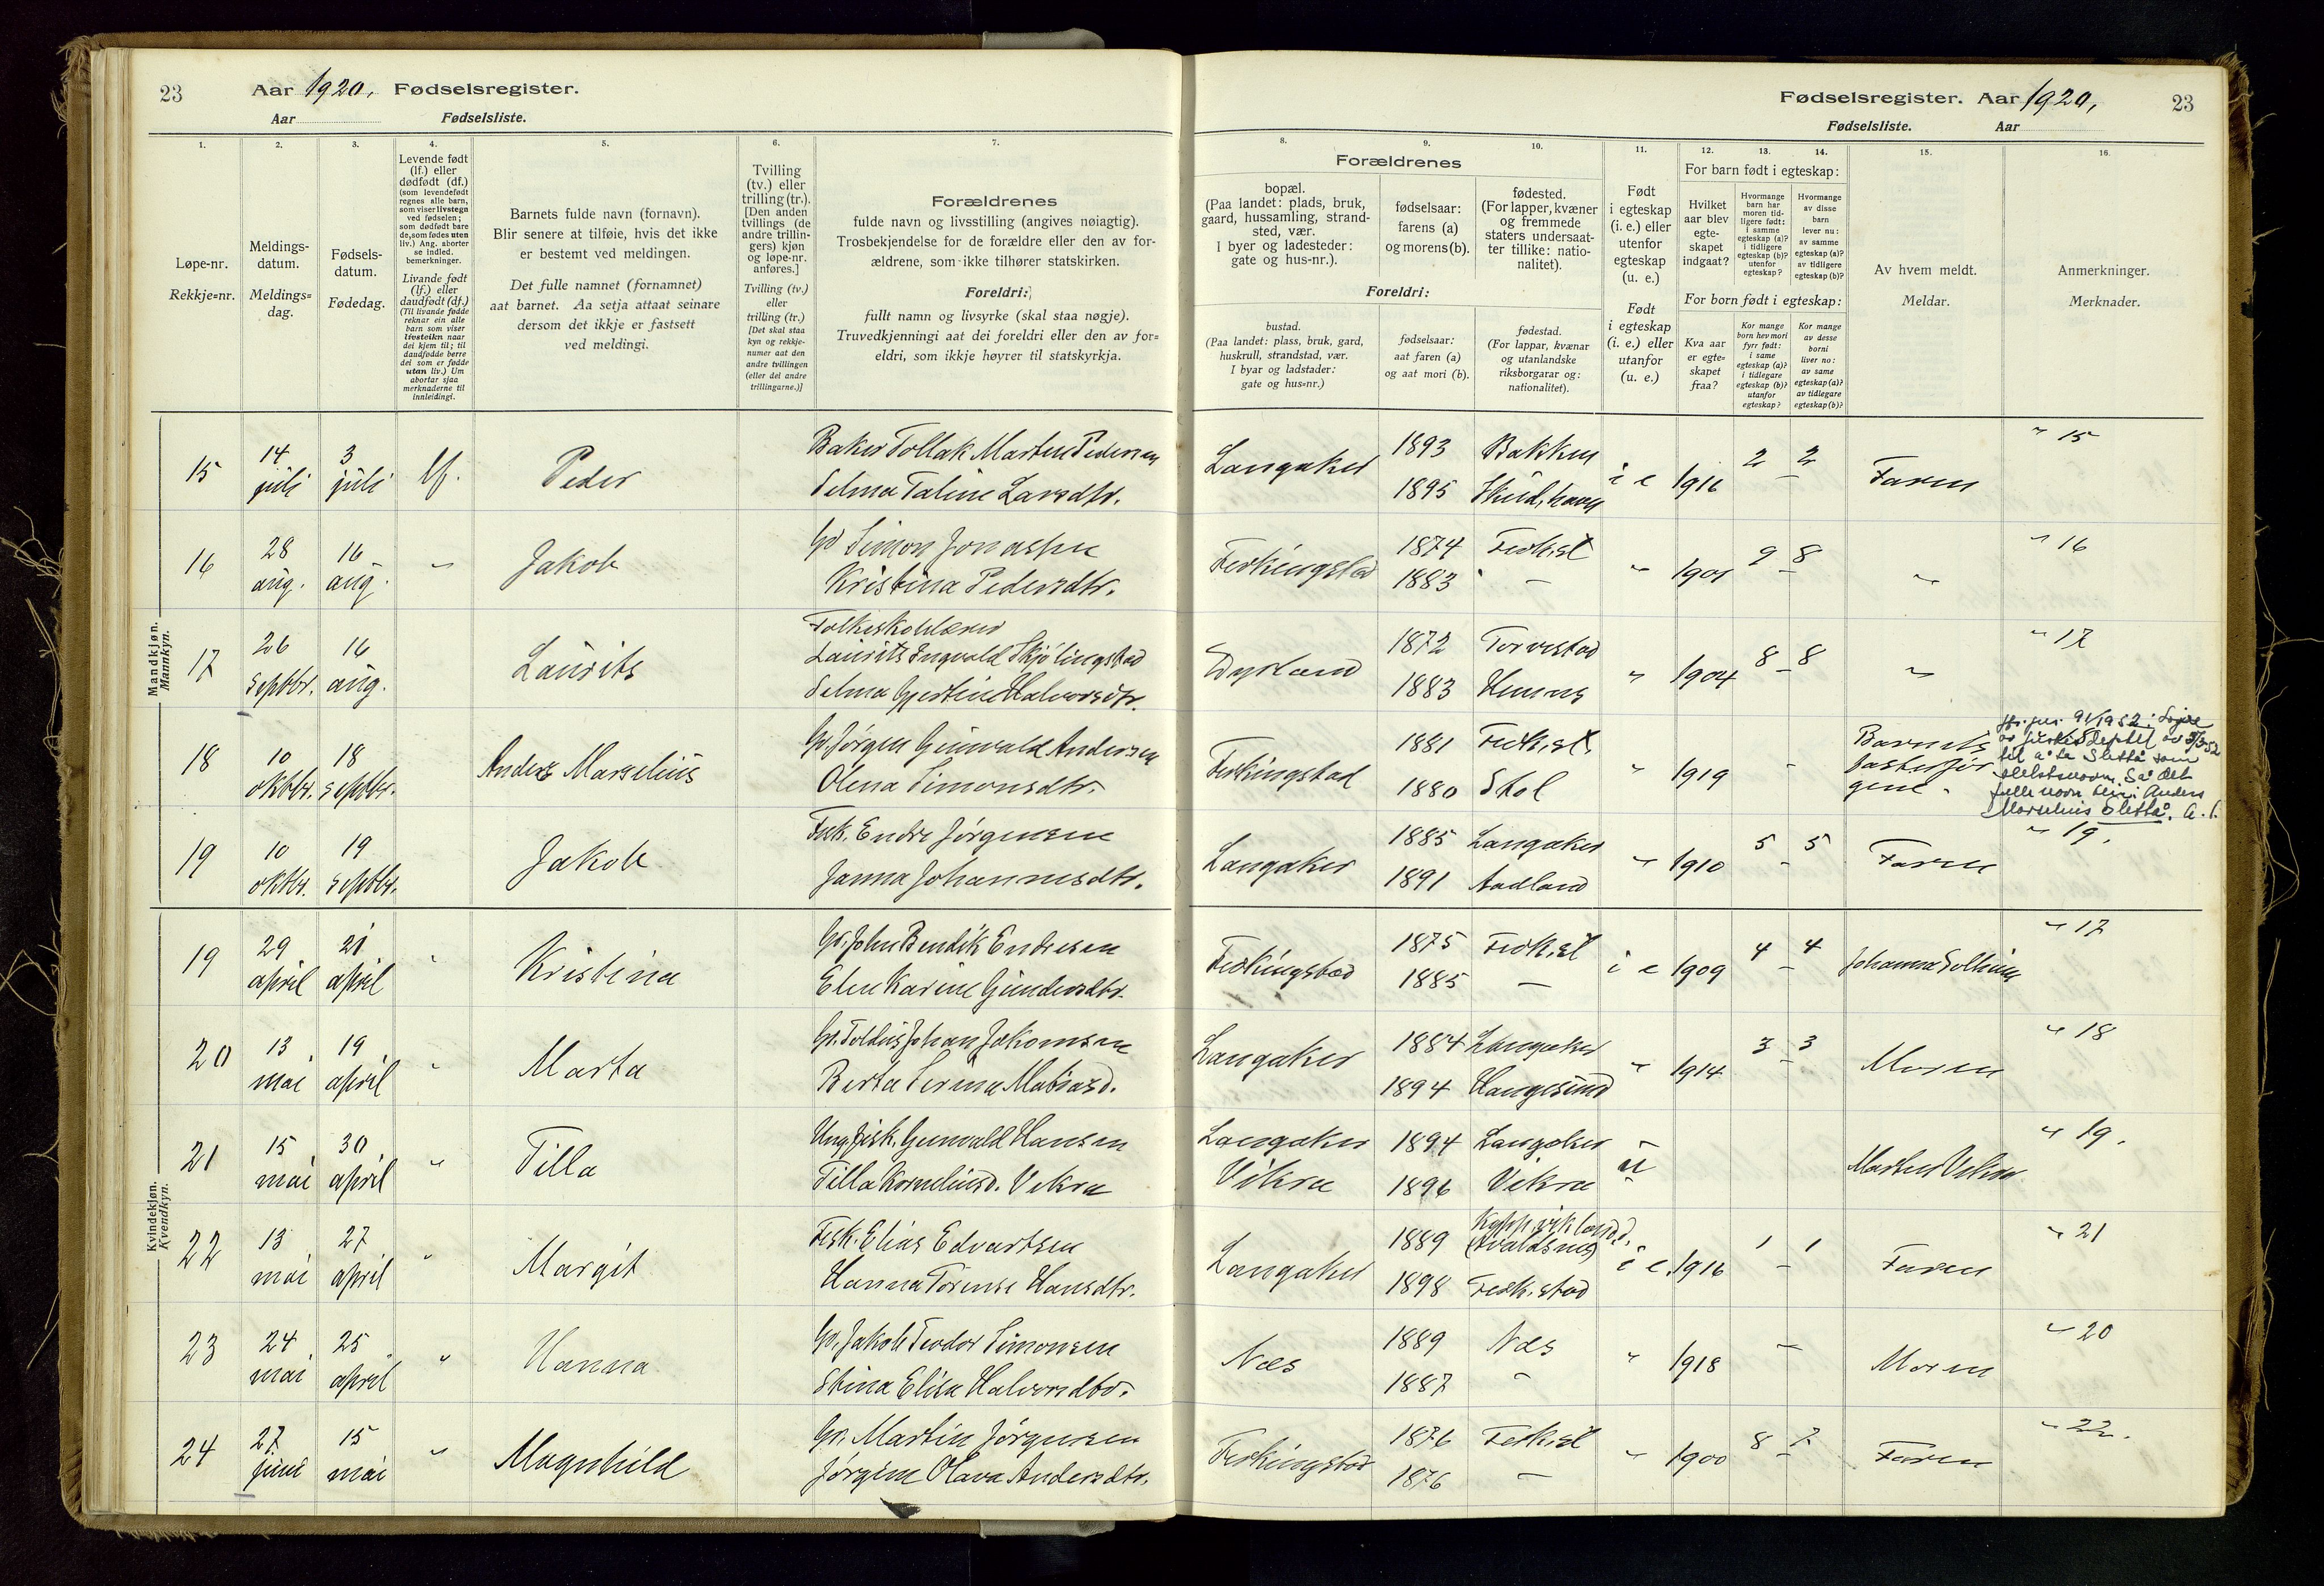 23 Aar 1920, Fødselsregister.
Aar Fødselsliste.
1. 2. 3. 4. 5. 6. 7.
Løpe-nr.
Rekkje=nr.
Meldings-
datum.
Meldings=
dag.
Fødsels-
datum.
Fødedag.
Levende født
(lf.) eller
dødfødt (df.)
(som levendefødt
regnes alle barn,
som viser livstegn
ved fødselen;
som dødfødt bare
de, som fødes uten
liv.) Ang. aborter
se indled.
bemerkninger.
Livande født
(lf.) eller
daudfødt (df.)
(Til livande fødde
reknar ein alle
barn som viser
livsteikn naar
dei kjem til; til
daudfødde berre
dei som er fødde
utan liv.) Um
abortar sjaa
merknaderne til
innleidingi.
Barnets fulde navn (fornavn).
Blir senere at tilføie, hvis det ikke
er bestemt ved meldingen.
Det fulle namnet (fornamnet)
aat barnet. Aa setja attaat seinare
dersom det ikkje er fastsett
ved meldingi.
Tvilling
(tv.) eller
trilling (tr.).
[Den anden
tvillings (de
andre trillin-
gers) kjøn
og løpe-nr.
anføres.]
Tvilling (tv.)
eller
trilling (tr.)
[Det skal staa
kyn og rekkje-
numer aat den
andre tvillingen
(eller dei andre
trillingarne.)]
Forældrenes
fulde navn og livsstilling (angives nøiagtig).
Trosbekjendelse for de forældre eller den av for-
ældrene, som ikke tilhører statskirken.
Foreldri:
fullt namn og livsyrke (skal staa nøgje).
Truvedkjenningi aat dei foreldri eller den av for=
eldri, som ikkje høyrer til statskyrkja.
Mandkjøn.
Mannkyn.
15 14 juli 3 juli lf. Peder
Baker Tollak Martin Pedersen
Selma Taline Larsdtr.
16 28 aug. 16 aug. " Jakob
Gr Simon Jonassen
Kristina Pedersdtr.
17 26 septbr. 16 aug. Laurits
Folkeskolelærer
Laurits Ingvald Skjølingstad
Selma Gjertine Halvorsdtr.
18 10 oktbr. 18 septbr. Anders Marselius
Gr. Jørgen Gunvald Andersen
Olena Simonsdtr.
19 10 oktbr. 19 septbr. Jakob
Fisk. Endre Jørgensen
Janna Johannesdtr.
Kvindekjøn.
Kvendkyn.
19 29 april 21 april " Kristina
Gr. John Bendik Endresen
Elen Karine Gundersdtr.
20 13 mai 19 april " Marta
Gr. Toldius Johan Jakomsen
Berta Serina Matiasd.
21 15 mai 30 april " Tilla
Ung. fisk. Gunvald Hansen
Tilla Korneliusd. Vikra
22 13 mai 27 april " Margit
Fisk. Elias Edvartsen
Hanna Torense Hansdtr.
23 24 mai 25 april " Hanna
Gr. Jakob Teodor Simonsen
Stina Elisa Halvorsdtr.
24 27 juni 15 mai " Magnhild
Gr. Martin Jørgensen
Jørgine Olava Andersdtr.
Fødselsregister. Aar 1920, 23
Fødselsliste. Aar
8. 9. 10. 11. 12. 13. 14. 15. 16.
Forældrenes
bopæl.
(Paa landet: plads, bruk,
gaard, hussamling, strand-
sted, vær.
I byer og ladesteder:
gate og hus-nr.).
fødselsaar:
farens (a)
og morens (b).
fødested.
(For lapper, kvæner
og fremmede
staters undersaat-
ter tillike: natio-
nalitet).
Foreldri:
bustad.
(Paa landet: plass, bruk, gard,
huskrull, strandstad, vær.
I byar og ladstader:
gate og hus=nr.)
fødselsaar:
aat faren (a)
og aat mori (b).
fødestad.
(For lappar, kvænar
og utanlandske
riksborgarar og:
nationalitet).
Født
i egteskap
(i. e.) eller
utenfor
egteskap
(u. e.)
Født
i egteskap
(i. e.) eller
utanfor
(u. e.)
For barn født i egteskap:
Hvilket
aar blev
egte-
skapet
indgaat?
Hvormange
barn har
moren tid-
ligere født:
i samme
egteskap (a)?
i tidligere
egteskap (b)?
utenfor
egteskap?
Hvormange
av disse
barn
lever nu:
av samme
egteskap (a)?
av tidligere
egteskap (b)?
For born født i egteskap:
Kva aar
er egte-
skapet
fraa?
Kor mange
born hev mori
fyrr født:
i same
egteskap (a)?
i tidlegare
egteskap (b)?
utanfor
egteskap?
Kor mange
av desse
borni
liver no:
av same
egteskap (a)?
av tidlegare
egteskap (b)?
Av hvem meldt.
Meldar.
Anmerkninger.
Merknader.
Langaker 1893 Bakken i e 1916 2 - 2 Faren " 15
1895 Skud.havn
Ferkingstad 1874 Ferk.st " 1901 9 - 8 " " 16
1883 —
Dyrland 1872 Torvestad " 1904 8 - 8 " " 17
1883 Hemnes
Ferkingstad 1881 Ferk.st. " 1919 - Barnets
1880 Stol
Jfr. jnr. 91/1952:
til å ta Slettå som
slektsnavn. Så det
fulle navn blir: Anders
Marselius Slettå.
Langaker 1885 Langaker " 1910 5 - 5 Faren " 19.
1891 Aadland
Ferkingstad 1875 Ferk.st i e 1909 4 - 4 Johanna " 17
1885 —
Langaker 1884 Langaker " 1914 3 - 3 Moren " 18
1894 Haugesund
Langaker 1894 Langaker u Markus Vikra " 19.
Vikra 1896 Vikra
Langaker 1889 (Avaldsnes) i e. 1916 1 - 1 Faren " 21
1898 Ferk.stad
Næs 1889 Næs " 1918 — Moren " 20
1887 —
Ferkingstad 1876 Ferk.st " 1900 8 - 7 Faren " 22.
1876 —